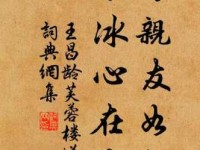 親友如
冰心在
王昌齡芙蓉樓
詞典網集